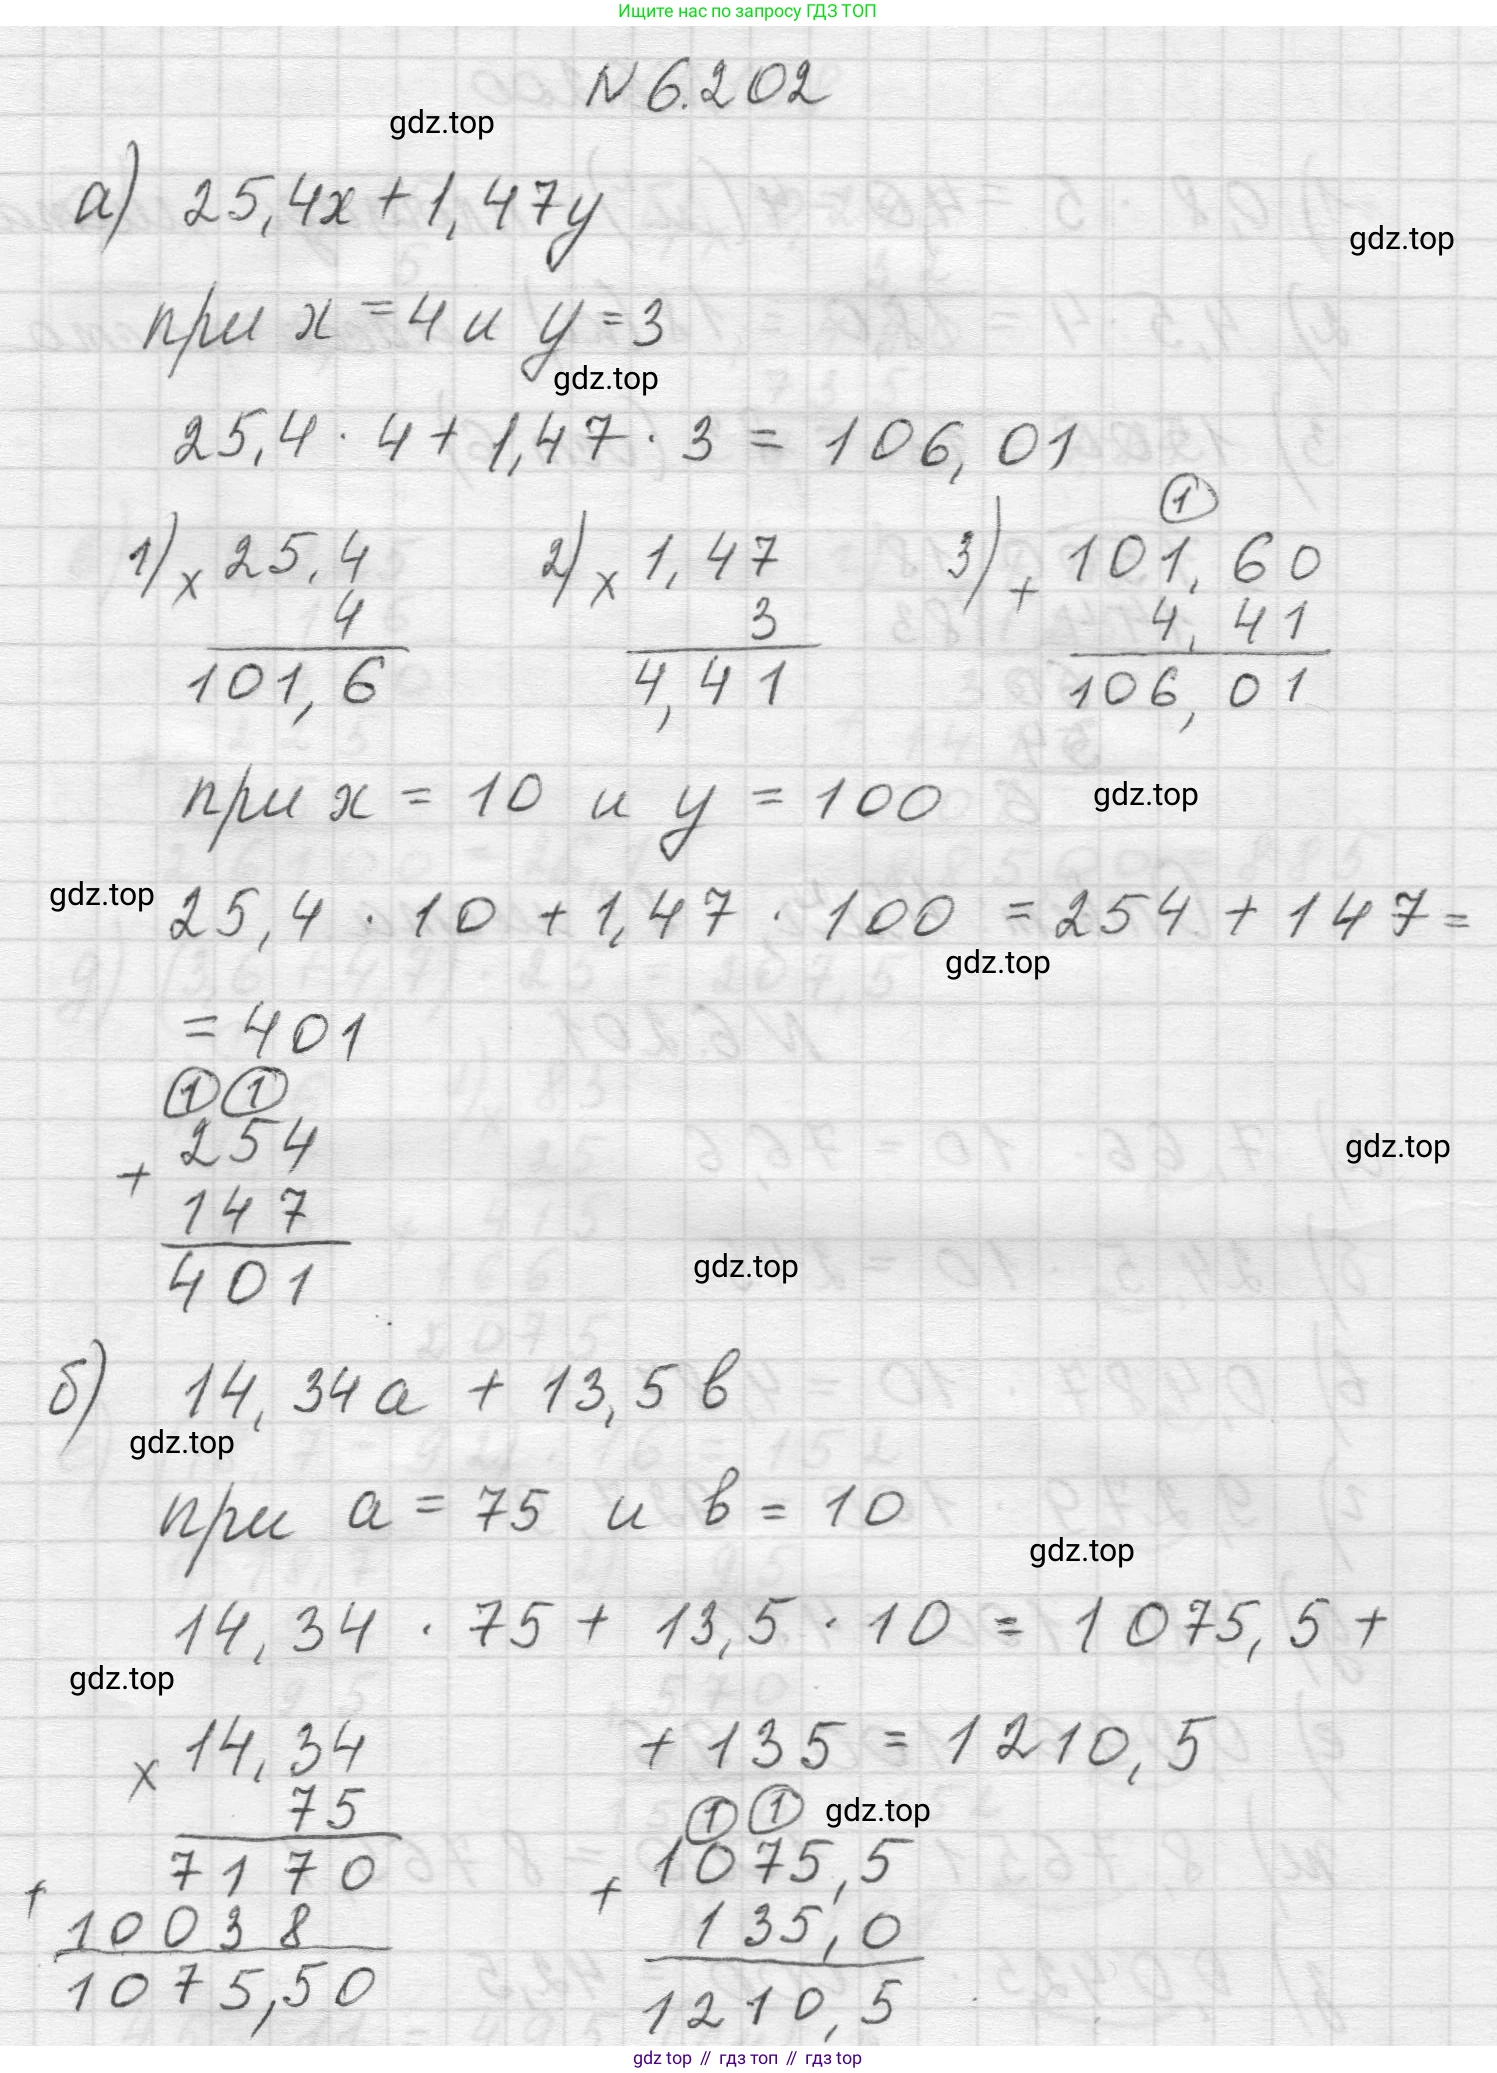 Ищите нас по запросу ГДЗ ТОП
N 6.202
gdz.top
а) 25,4x + 1,47y
gdz.top
при x = 4 и y = 3
gdz.top
25,4 · 4 + 1,47 · 3 = 106,01
1) × 25,4
4
101,6
2) × 1,47
3
4,41
3) 1
+ 101,60
4,41
106,01
при x = 10 и y = 100
gdz.top
gdz.top
25,4 · 10 + 1,47 · 100 = 254 + 147 =
gdz.top
= 401
1 1
+ 254
147
401
gdz.top
gdz.top
б) 14,34a + 13,5 b
gdz.top
при a = 75 и b = 10
gdz.top
14,34 · 75 + 13,5 · 10 = 1075,5 +
gdz.top
+ 135 = 1210,5
× 14,34
75
7170
+ 10038
1075,50
1 1
gdz.top
+ 1075,5
135,0
1210,5
gdz top // гдз топ // гдз top